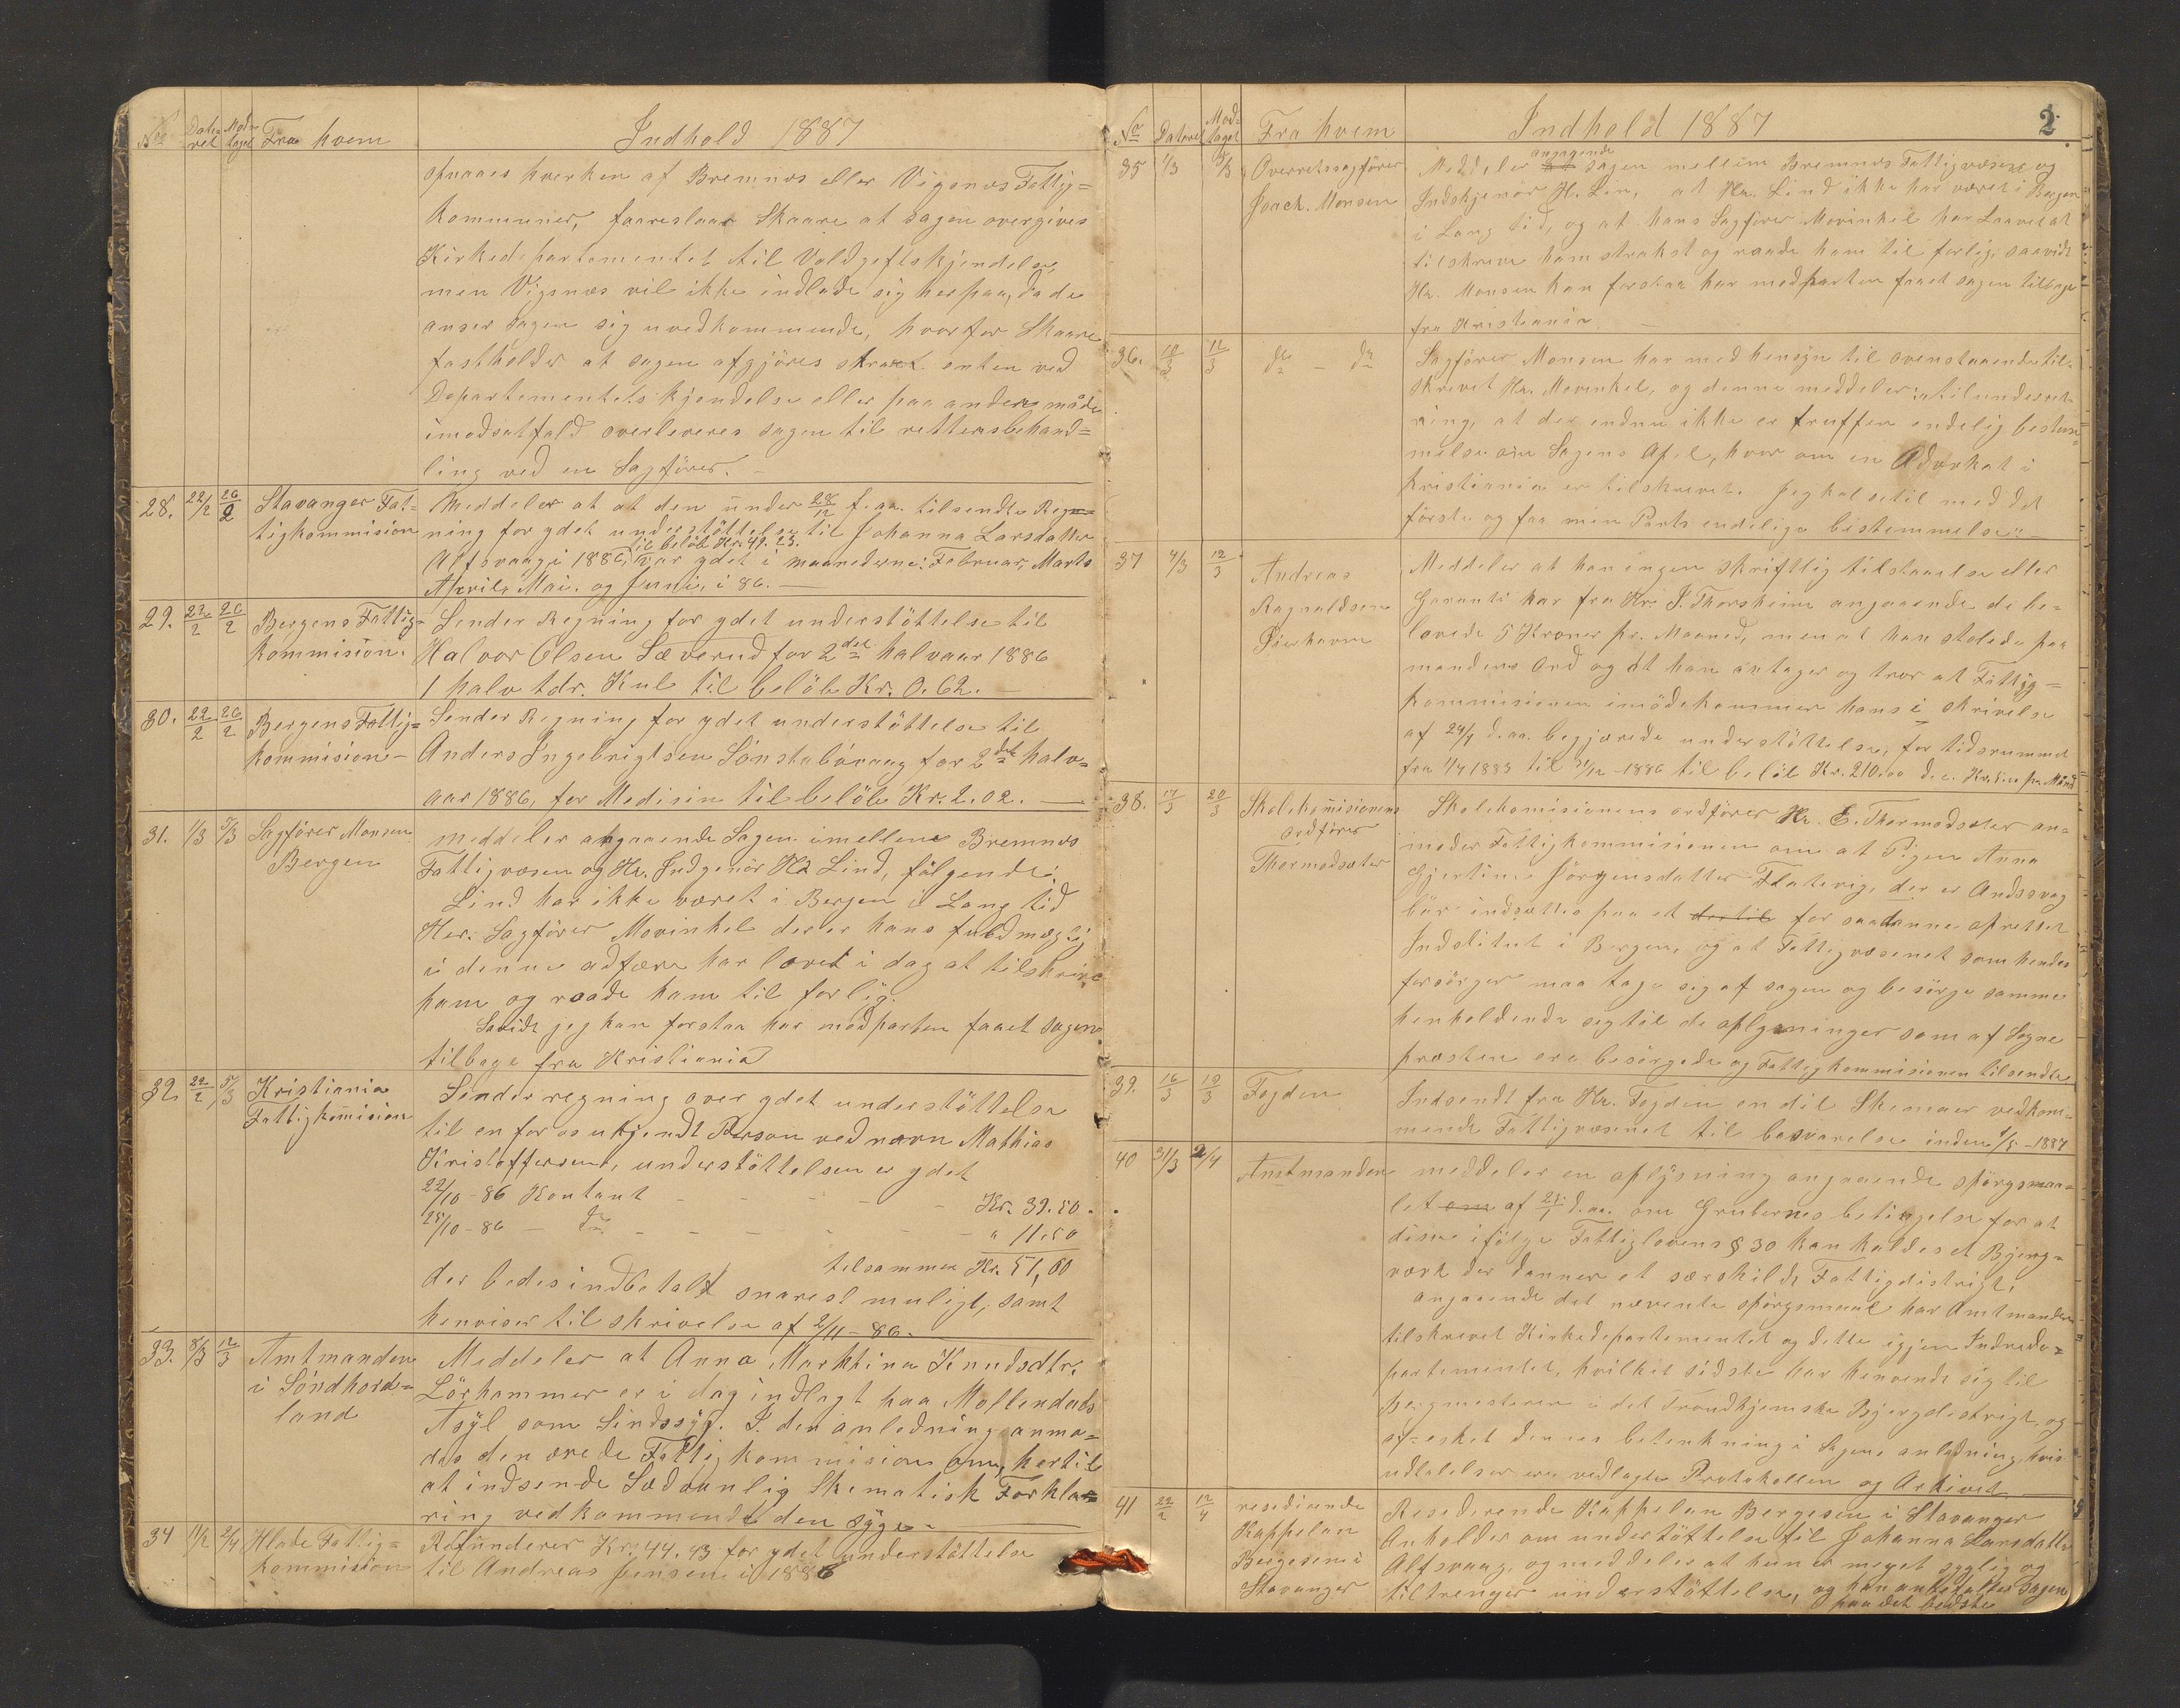 No Date-ret Mod-taget Fra hvem Indhold 1887
opnaaes hverken af Bremnes eller Vigsnes Fattig=
kommuner, faareslaar Skaare at sagen overgives
Kirkedepartementet til Voldgiftskjendelse,
men Vigsnæs vil ikke indlade sig herpaa, da de
anser sagen sig uvedkommende, hvorfor Skaare
fastholder at sagen afgjöres straxt enten ved
Departementets kjendelse eller paa anden måde
imodsatfald overleveres sagen til rettensbehand=
ling ved en Sagförer. –
28. 22/2 26/2 Stavanger Fat-
tigkommision
Meddeler at at den under 28/12 f. aa. tilsendte Reg-
ning for ydet understöttelse til Johanna Larsdatter
til belöb Kr. 49.23.
Alfsvaag i 1886, var ydet i maanederne: Februar, Marts
April, Mai. og Juni, i 86. —
29. 22/2 26/2 Bergens Fattig-
kommision.
Sender Regning for ydet understöttelse til
Halvor Olsen Sæverud for 2det halvaar 1886
1 halv tdr. Kul til belöb Kr. 0.62. —
30. 22/2 26/2 Bergens Fattig=
kommision –
Sender Regning for ydet understöttelse til
Anders Ingebrigtsen Sönstabövaag for 2det halv=
aar 1886, for Medisin til belöb Kr. 2.02. —
31. 1/3 5/3 Sagförer Monsen
Bergen
meddeler angaaende Sagen imellem Bremnes
Fattigvæsen og Hr. Indgenör Hd Lind, fölgende:
Lind har ikke været i Bergen i Lang tid
Her. Sagförer Movinkel der er hans fuldmægtig
i denne adfære har lovet i dag at tilskrive
ham og raade ham til forlig.
Savidt jeg kan forstaa har modparten faaet sagen
tilbage fra Kristiania
32. 22/2 5/3 Kristiania
Fattigkomision
Sender regning over ydet understöttelse
til en for os ukjendt Person ved navn Mathias
Kristoffersen, understöttelsen er ydet
22/10 – 86 Kontant – – – – Kr. 39.50.
25/10 – 86 – do – – – – – " 11.50
tilsammen Kr. 51,00
der bedes indbetalt snarest muligt, samt
henviser til skrivelse af 2/11 – 86.
33. 8/3 12/3 Amtmanden
i Söndhord=
land
Meddeler at Anna Marktina Knudsdtr.
Lörhammer er i dag indlagt paa Möllendals
Asyl som Sindssyg. I den anledning anmo=
des den ærede Fattigkommision om, hertil
at indsende Sædvanlig Skematisk Forkla=
ring vedkommende den syge.
34 11/2 2/4 Hlade Fattig=
kommision
Refunderer Kr. 44.43 for ydet understöttelse
til Andreas Jensen i 1886
No Dateret Mod=taget Fra hvem Indhold 1887 2
35 1/3 5/3 Overretssagförer
Joach. Monsen
angagende
Meddeler sagen mellem Bremnes Fattigvæsen og
Indskjenör H. Lin, at Hr. Lind ikke har været i Bergen
i Lang tid, og at hans Sagförer Movinkel har Laavet at
tilskreve ham strakst og raade ham til forlig, saavidt
Hr. Monsen kan forstaa har modparten faaet sagen tilbage
fra Kristiania –
36. 10/3 12/3 do – do
Sagförer Monsen har med hensyn til ovenstaaende til-
skrevet Hr. Movinkel, og denne meddeler: "til underret-
ning, at der endnu ikke er truffen endelig bestem=
melse om Sagens Apel, hvor om en Advokat i
Kristiania er tilskrevet. Jeg skal se til med det
förste og faa min Parts endelige bestemmelse" –
37 4/3 12/3 Andreas
Ragnaldsen
Öierhavn
Meddeler at han ingen skriftlig tilstaaelse eller
Garanti har fra Hr. I. Thorsheim angaaende de be=
lovede 5 Kroner pr. Maaned, men at han stolede paa
mandens Ord og at han antager og tror at Fattig=
kommisionen imödekommer hans i skrivelse
af 24/1 d. aa. begjærede understöttelse, for tidsrummet
fra 1/7 1883 til 31/12 – 1886 til belöb Kr. 210.00 d. e. Kr. 5.00 pr. Månd
38. 17/3 20/3 Skolekomisionens
ordförer
Thormodsæter
Skolekomisionens ordförer Hr. E. Thormodsæter an=
moder Fattigkommisionen om at Pigen Anna
Gjertine Jörgensdatter Flatevig, der er Andssvag
bör indsættes paa et dertil for saadanne oprettet
Institut i Bergen, og at Fattigvæsenet som hendes
forsörger maa tage sig af sagen og besörge samme
henholdende sig til de oplysninger som af Sogne
præsten ere besörgede og Fattigkommisionen tilsendte
39. 16/3 19/3 Fogden
Indsendt fra Hr. Fogden en del Skemaer vedkom-
mende Fattigvæsenet til besvarelse inden 1/5 – 1887
40 31/3 2/4 Amtmanden
meddeler en oplysning angaaende spörgsmaa=
let om af 25/1 d. aa. om Grubernes betingelse for at
disse ifölge Fattiglovens § 30 kan kaldes et Bjerg=
værk der danner et særskildt Fattigdistrigt.
angaaende det nævente spörgsmaal har Amtmanden
tilskrevet Kirkedepartementet og dette igjen Indrede=
partementet, hvilket sidste har henvendt sig til
Bergmesteren i det Trondhjemske Bjergdistrigt, og
af-æsket dennes betenkning i Sagens anledning, hvis
udtalelser ere vedlagte Protokollen og Arkivet
41 22/2 12/4 residirende
Kappelan
Bergesen i
Stavanger
Residerende Kappelan Bergesen i Stavanger
Anholder om understöttelse til Johanna Larsdatter
Alfsvaag, og meddeler at hun er meget syglig og
tiltrenger understöttelse, og han anbefaller Sagen
paa det bedste